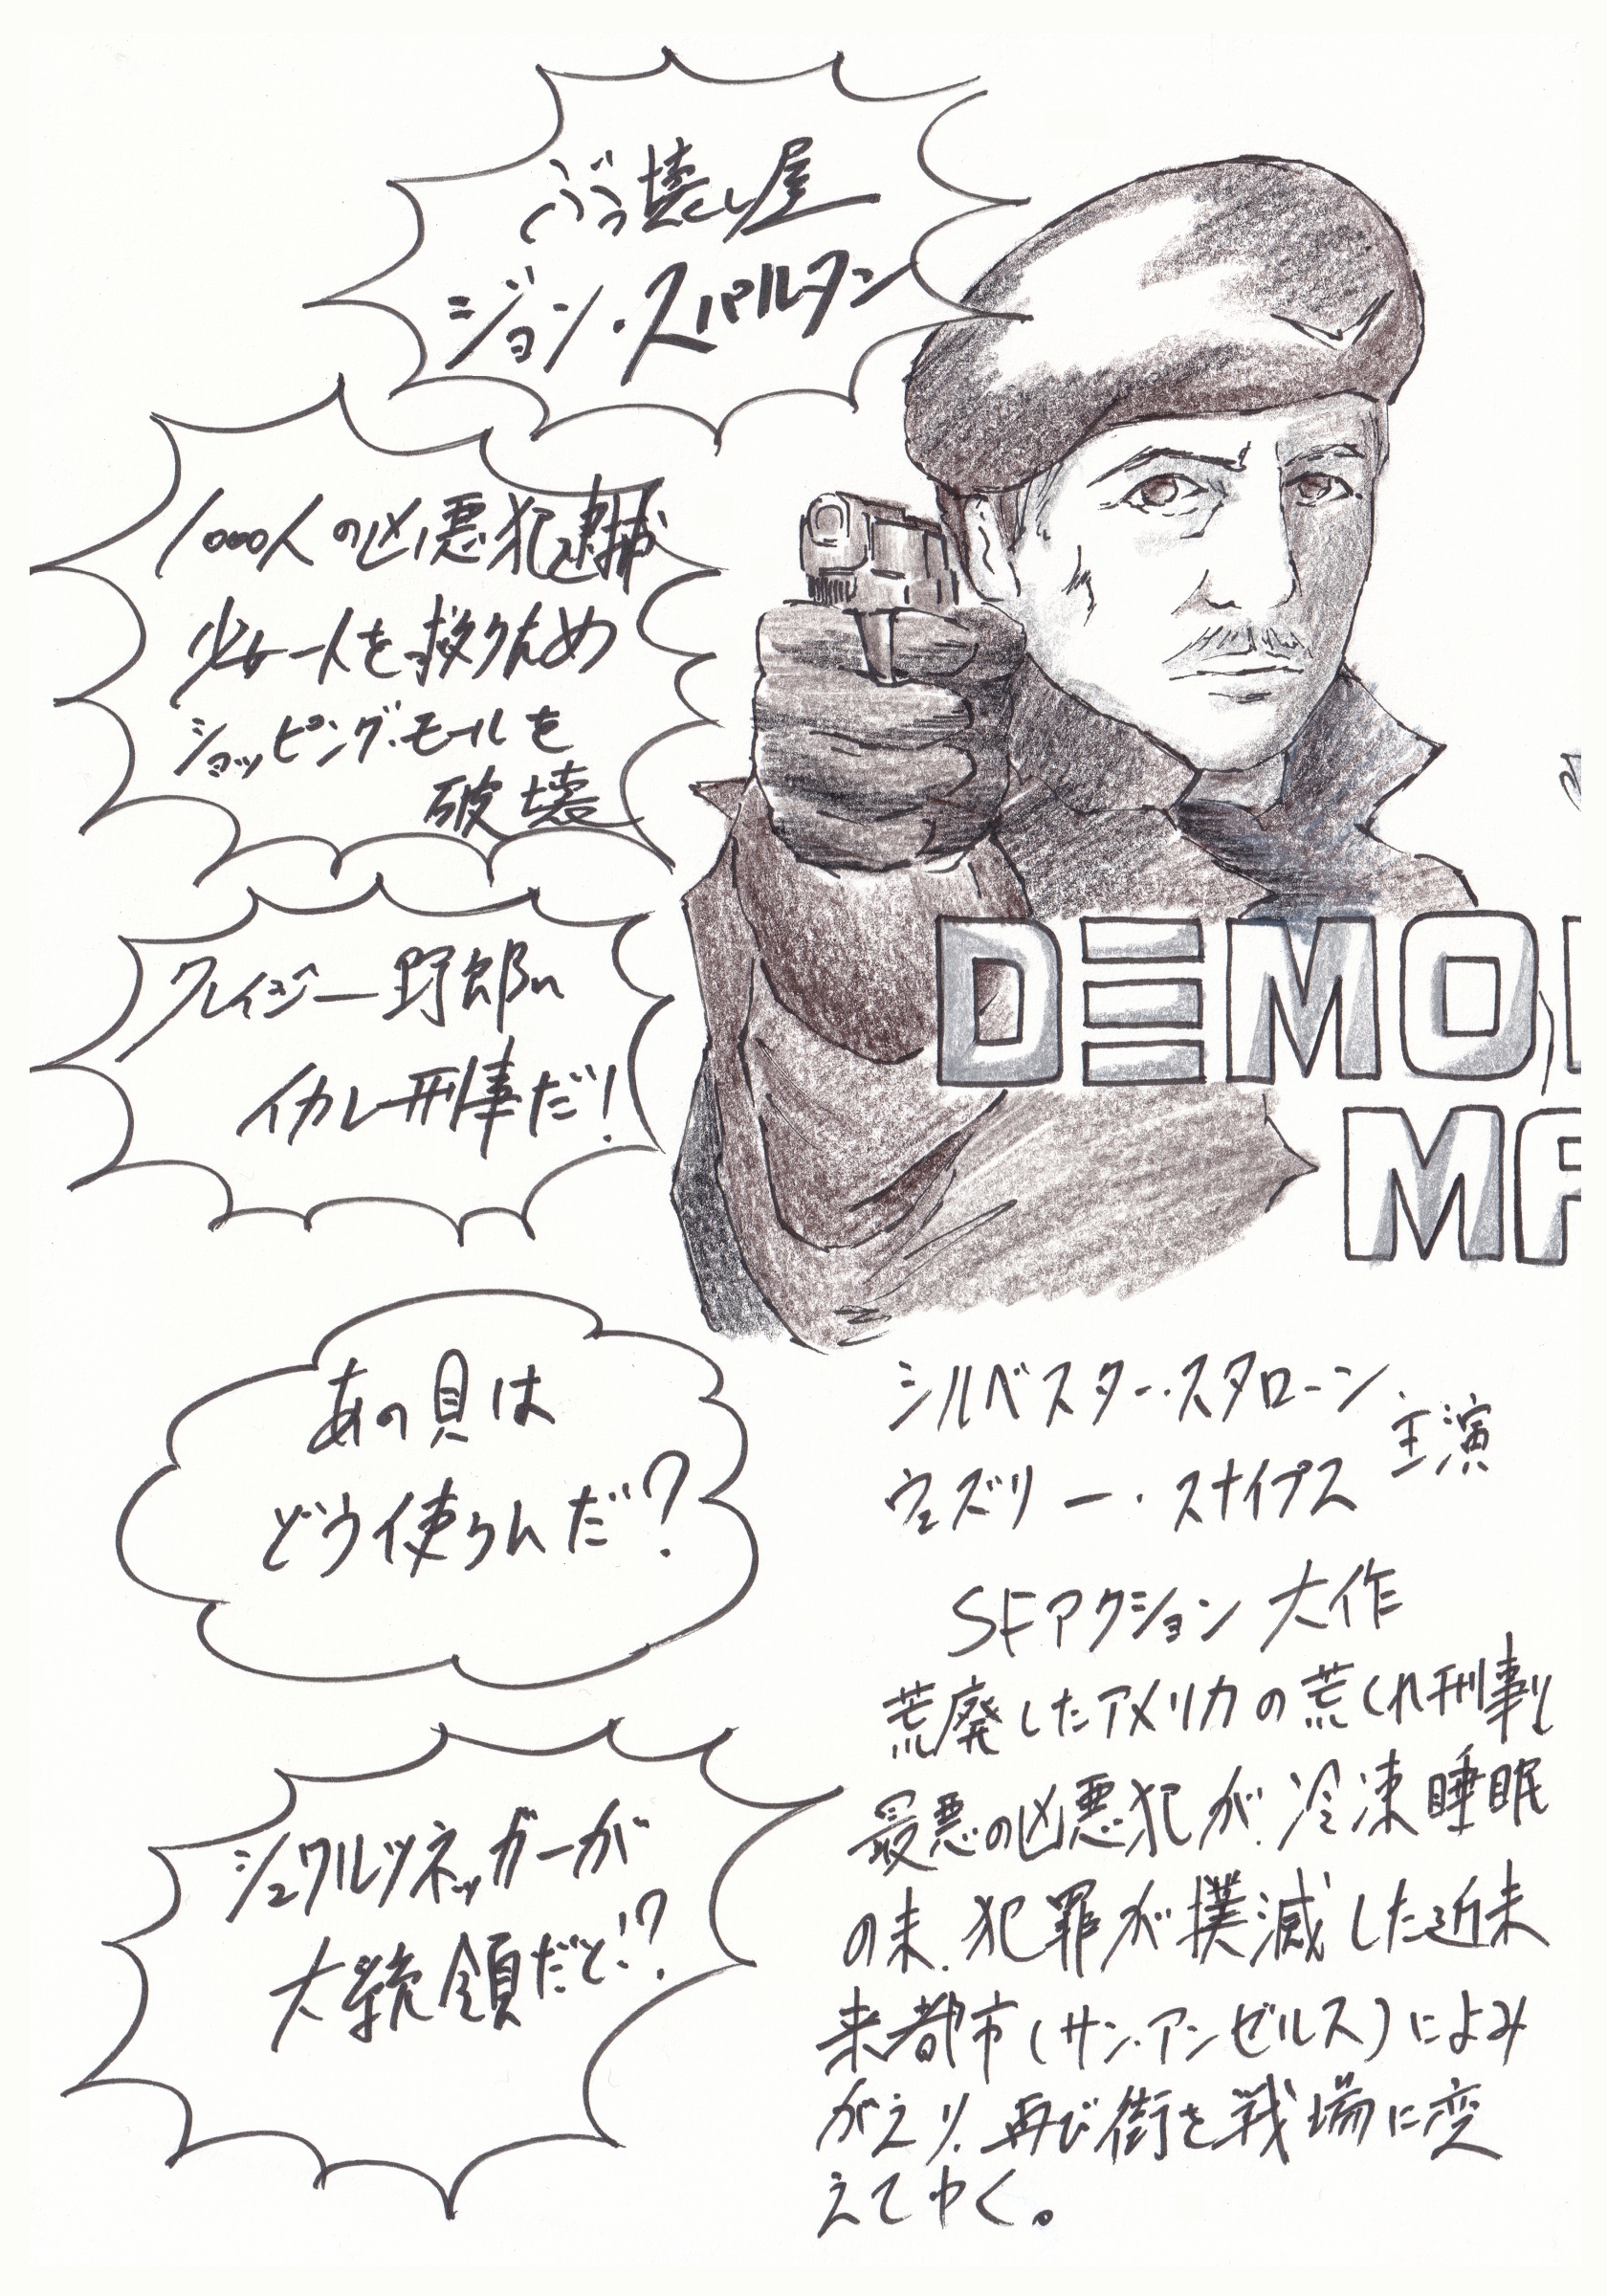 ぶっ壊し屋
ジョン・スパルタン
1000人の凶悪犯逮捕
少女一人を救うため
ショッピング・モールを
破壊
クレイジー野郎に
イカレ刑事だ!
あの貝は
どう使うんだ?
シュワルツネッガーが
大統領だと!?
DEMO
MA
シルベスター・スタローン
ウェズリー・スナイプス 主演
SFアクション大作
荒廃したアメリカの荒くれ刑事と
最悪の凶悪犯が、冷凍睡眠
の末、犯罪が撲滅した近未
来都市(サン・アンゼルス)によみ
がえり、再び街を戦場に変
えてゆく。